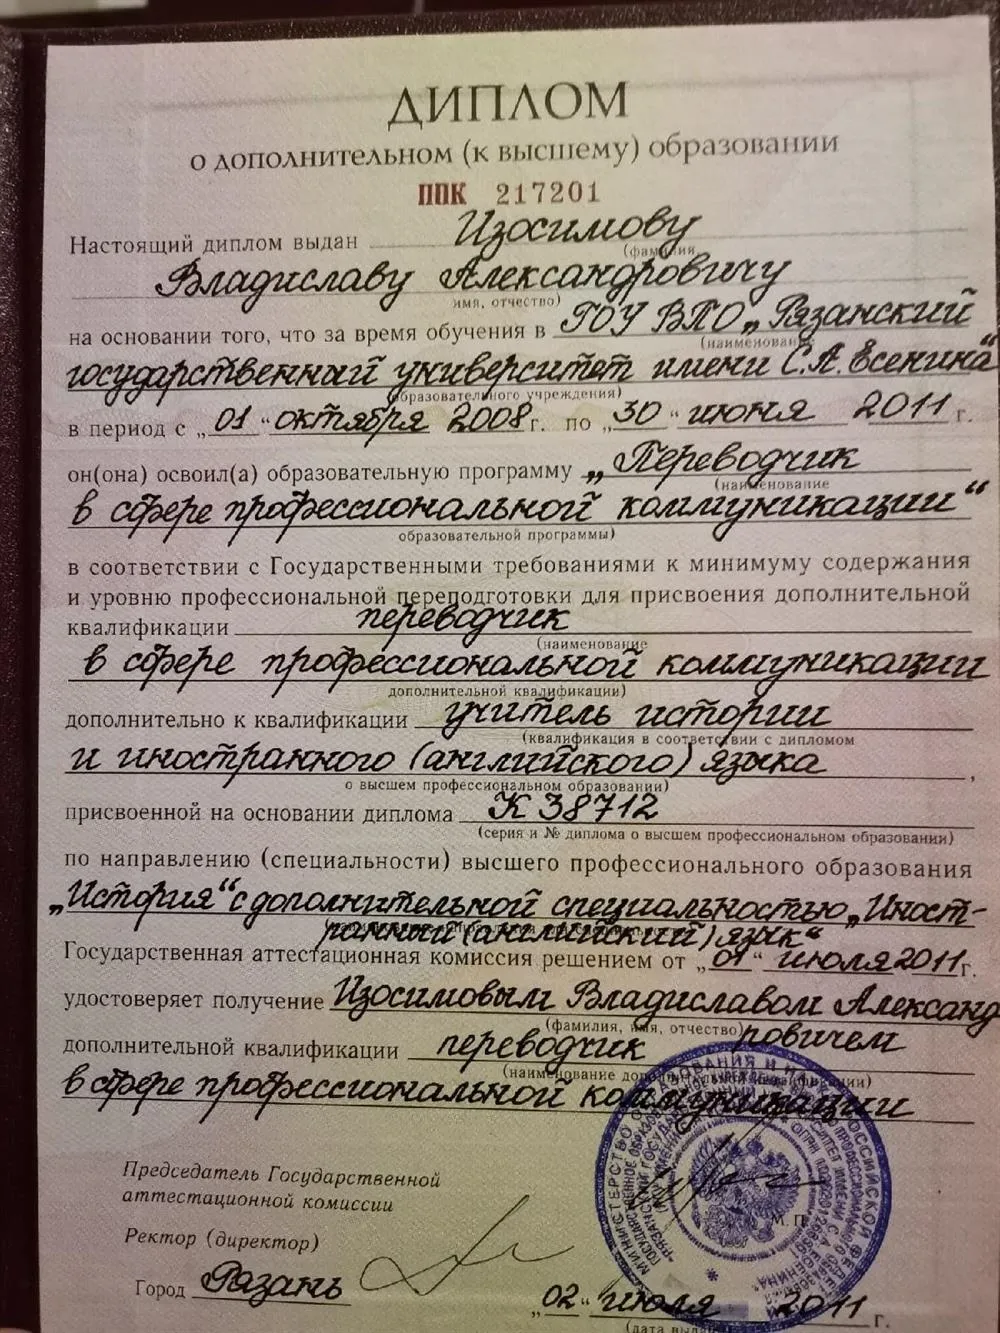 ДИПЛОМ
о дополнительном (к высшему) образовании
ППК 217201
Настоящий диплом выдан Изосимову
(фамилия,
Владиславу Александровичу
имя, отчество)
на основании того, что за время обучения в ГОУ ВПО „Рязанский
(наименование
государственный университет имени С.А. Есенина“
образовательного учреждения)
в период с „01“ октября 2008 г. по „30“ июня 2011 г.
он(она) освоил(а) образовательную программу „Переводчик
(наименование
в сфере профессиональной коммуникации“
образовательной программы)
в соответствии с Государственными требованиями к минимуму содержания
и уровню профессиональной переподготовки для присвоения дополнительной
квалификации переводчик
(наименование
в сфере профессиональной коммуникации
дополнительной квалификации)
дополнительно к квалификации учитель истории
(квалификация в соответствии с дипломом
и иностранного (английского) языка,
о высшем профессиональном образовании)
присвоенной на основании диплома К 38712
(серия и № диплома о высшем профессиональном образовании)
по направлению (специальности) высшего профессионального образования
„История“ с дополнительной специальностью „Иност-
ранный (английский) язык“
Государственная аттестационная комиссия решением от „01“ июля 2011 г.
удостоверяет получение Изосимовым Владиславом Александ
(фамилия, имя, отчество)
ровичем
дополнительной квалификации переводчик
(наименование дополнительной квалификации)
в сфере профессиональной коммуникации
Председатель Государственной
аттестационной комиссии
М.П.
Ректор (директор)
Город Рязань
„02“ июля 2011 г.
(дата выдачи